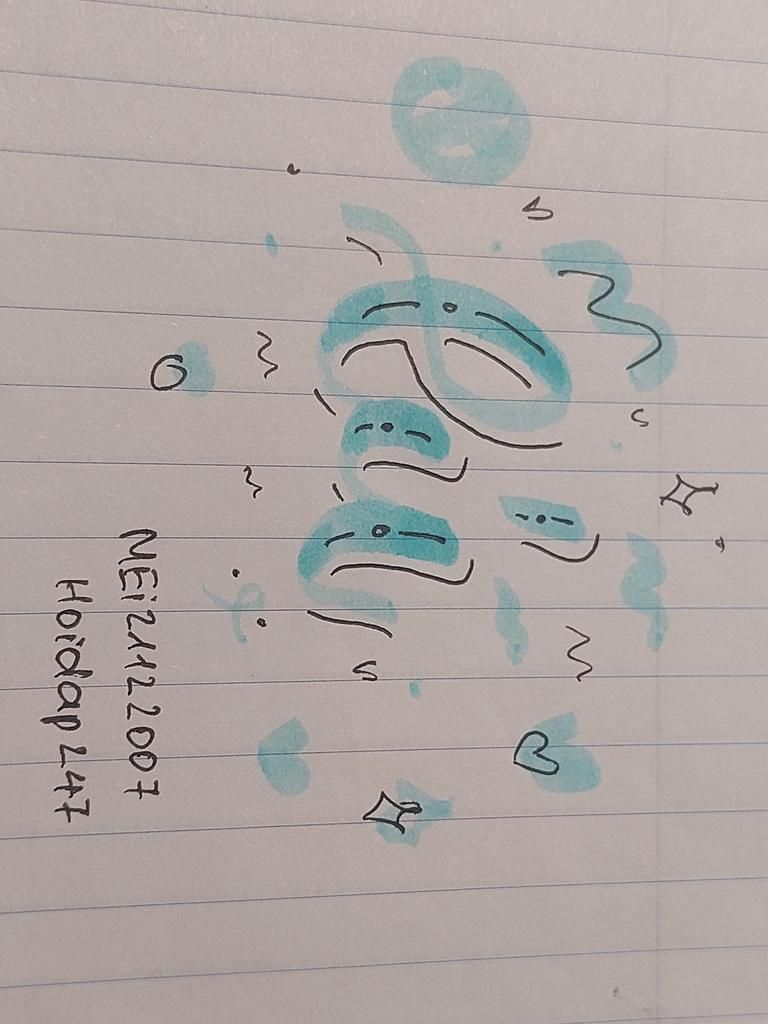 NEi21122007
Hoidap247